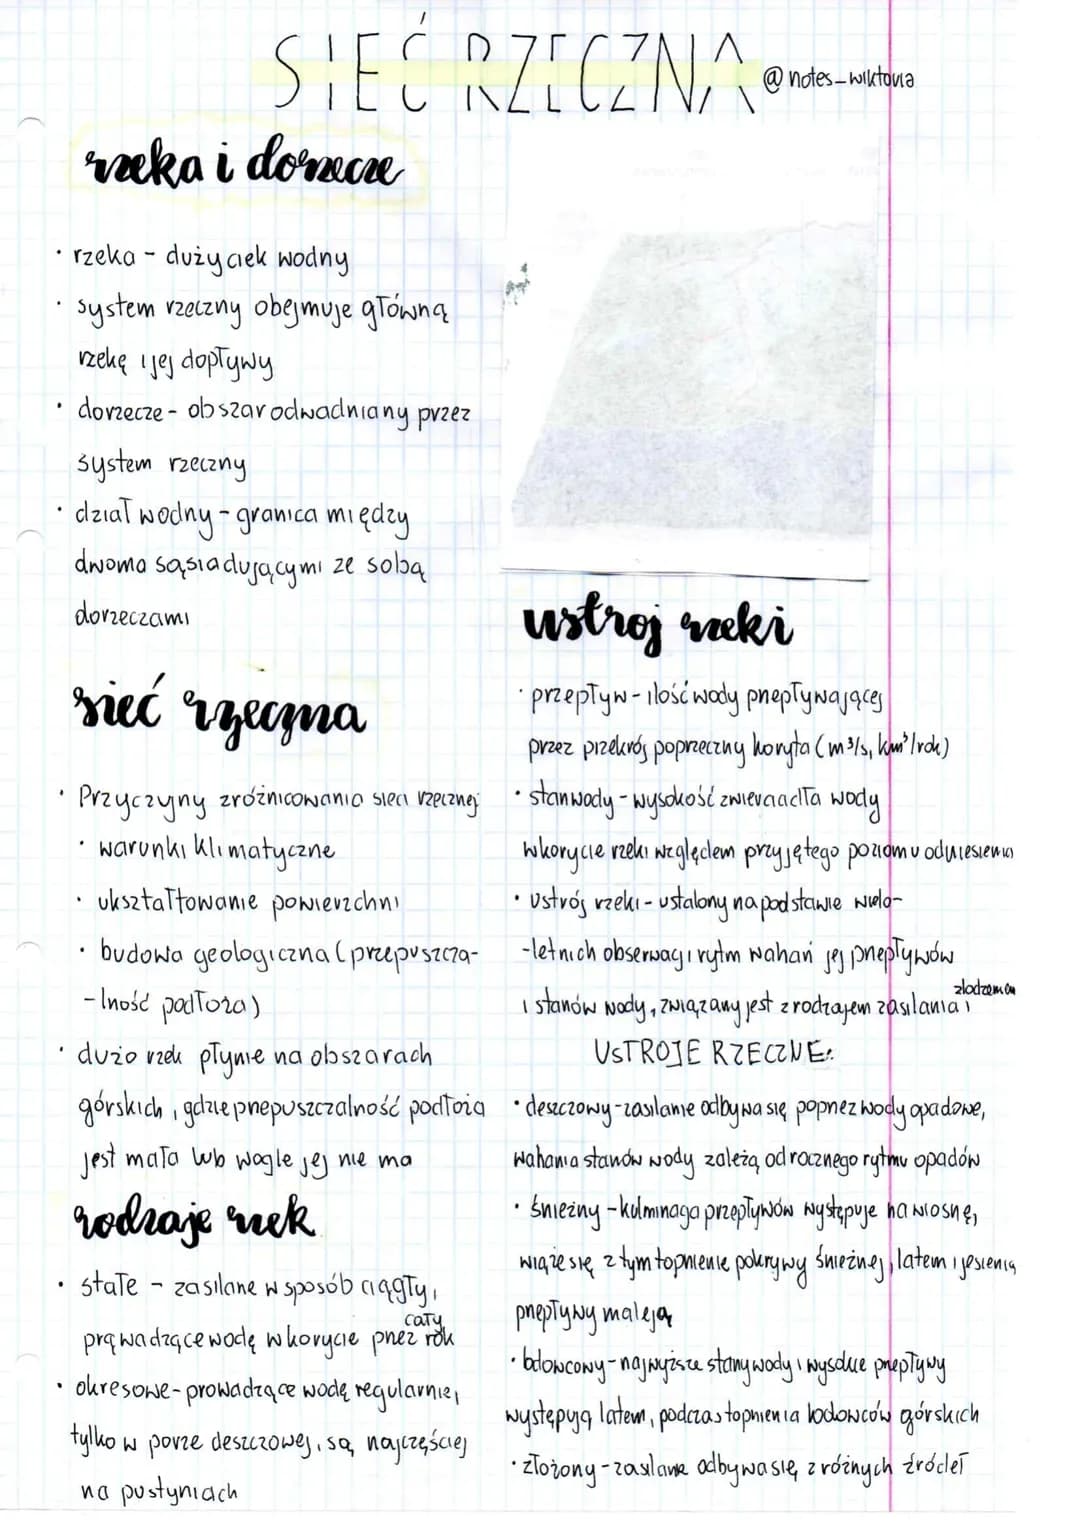 SIEĆ RZECZNA
@notes_wiktoria
rzeka i dorzecze
· rzeka - duży ciek wodny
· system rzeczny obejmuje główną
rzekę i jej dopływy
· dorzecze - obszar odwadniany przez
system rzeczny
· dział wodny - granica między
dwoma sąsiadującymi ze sobą
dorzeczami
sieć rzeczna
· Przyczyny zróżnicowania sieci rzecznej
· warunki klimatyczne
· ukształtowanie powierzchni
· budowa geologiczna (przepuszcza-
-lność podłoża)
· dużo rzek płynie na obszarach
górskich, gdzie przepuszczalność podłoża
jest mała lub wogle jej nie ma
rodzaje rzek
· stałe - zasilane w sposób ciągły,
prowadzące wodę w korycie przez cały rok
· okresowe - prowadzące wodę regularnie,
tylko w porze deszczowej, są najczęściej
na pustyniach
ustroj rzeki
· przepływ - ilość wody przepływającej
przez przekrój poprzeczny koryta (m³/s, km³/rok)
· stan wody - wysokość zwierciadła wody
w korycie rzeki względem przyjętego poziomu odniesienia
· ustrój rzeki - ustalony na podstawie wielo-
-letnich obserwacji rytm wahań jej przepływów
i stanów wody, związany jest z rodzajem zasilania i
USTROJE RZECZNE:
· deszczowy - zasilanie odbywa się poprzez wody opadowe,
wahania stanów wody zależą od rocznego rytmu opadów
· śnieżny - kulminacja przepływów występuje na wiosnę,
wiąże się z tym topnienie pokrywy śnieżnej, latem i jesienią
przepływy maleją
· lodowcowy - najwyższe stany wody i wysokie przepływy
występują latem, podczas topnienia lodowców górskich
· złożony - zasilanie odbywa się z różnych źródeł